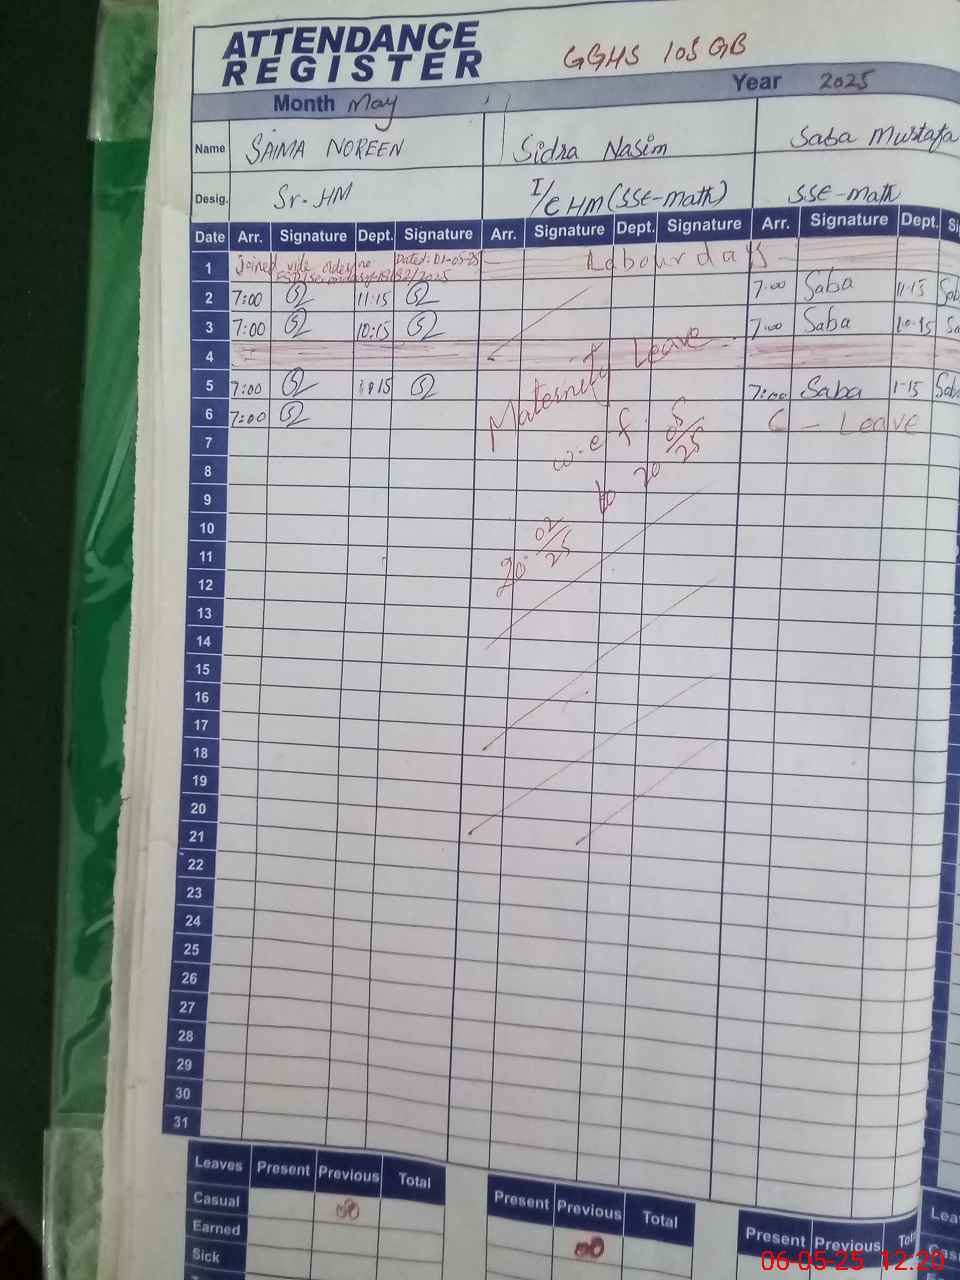 ATTENDANCE
REGISTER
GGHS 105 GB
Month May
Year 2025
Name SAIMA NOREEN Sidra Nasim Saba Mustafa
Desig. Sr. HM I/C HM (SSE-math) SSE-math
Date Arr. Signature Dept. Signature Arr. Signature Dept. Signature Arr. Signature Dept.
1 Joined vide order no Dated: 01-05-25 Labour day
2 7:00 11:15 7:00 Saba 11-15 Sab
3 7:00 10:15 7:00 Saba 10-15 Sa
4
5 7:00 7:00 Saba 1-15 Sab
6 7:00 C - Leave
Maternity Leave
w.e.f.
20 02/25 to 20 05/25
7
8
9
10
11
12
13
14
15
16
17
18
19
20
21
22
23
24
25
26
27
28
29
30
31
Leaves Present Previous Total Present Previous Total Present Previous
Casual
Earned
Sick
06-05-25 12:20